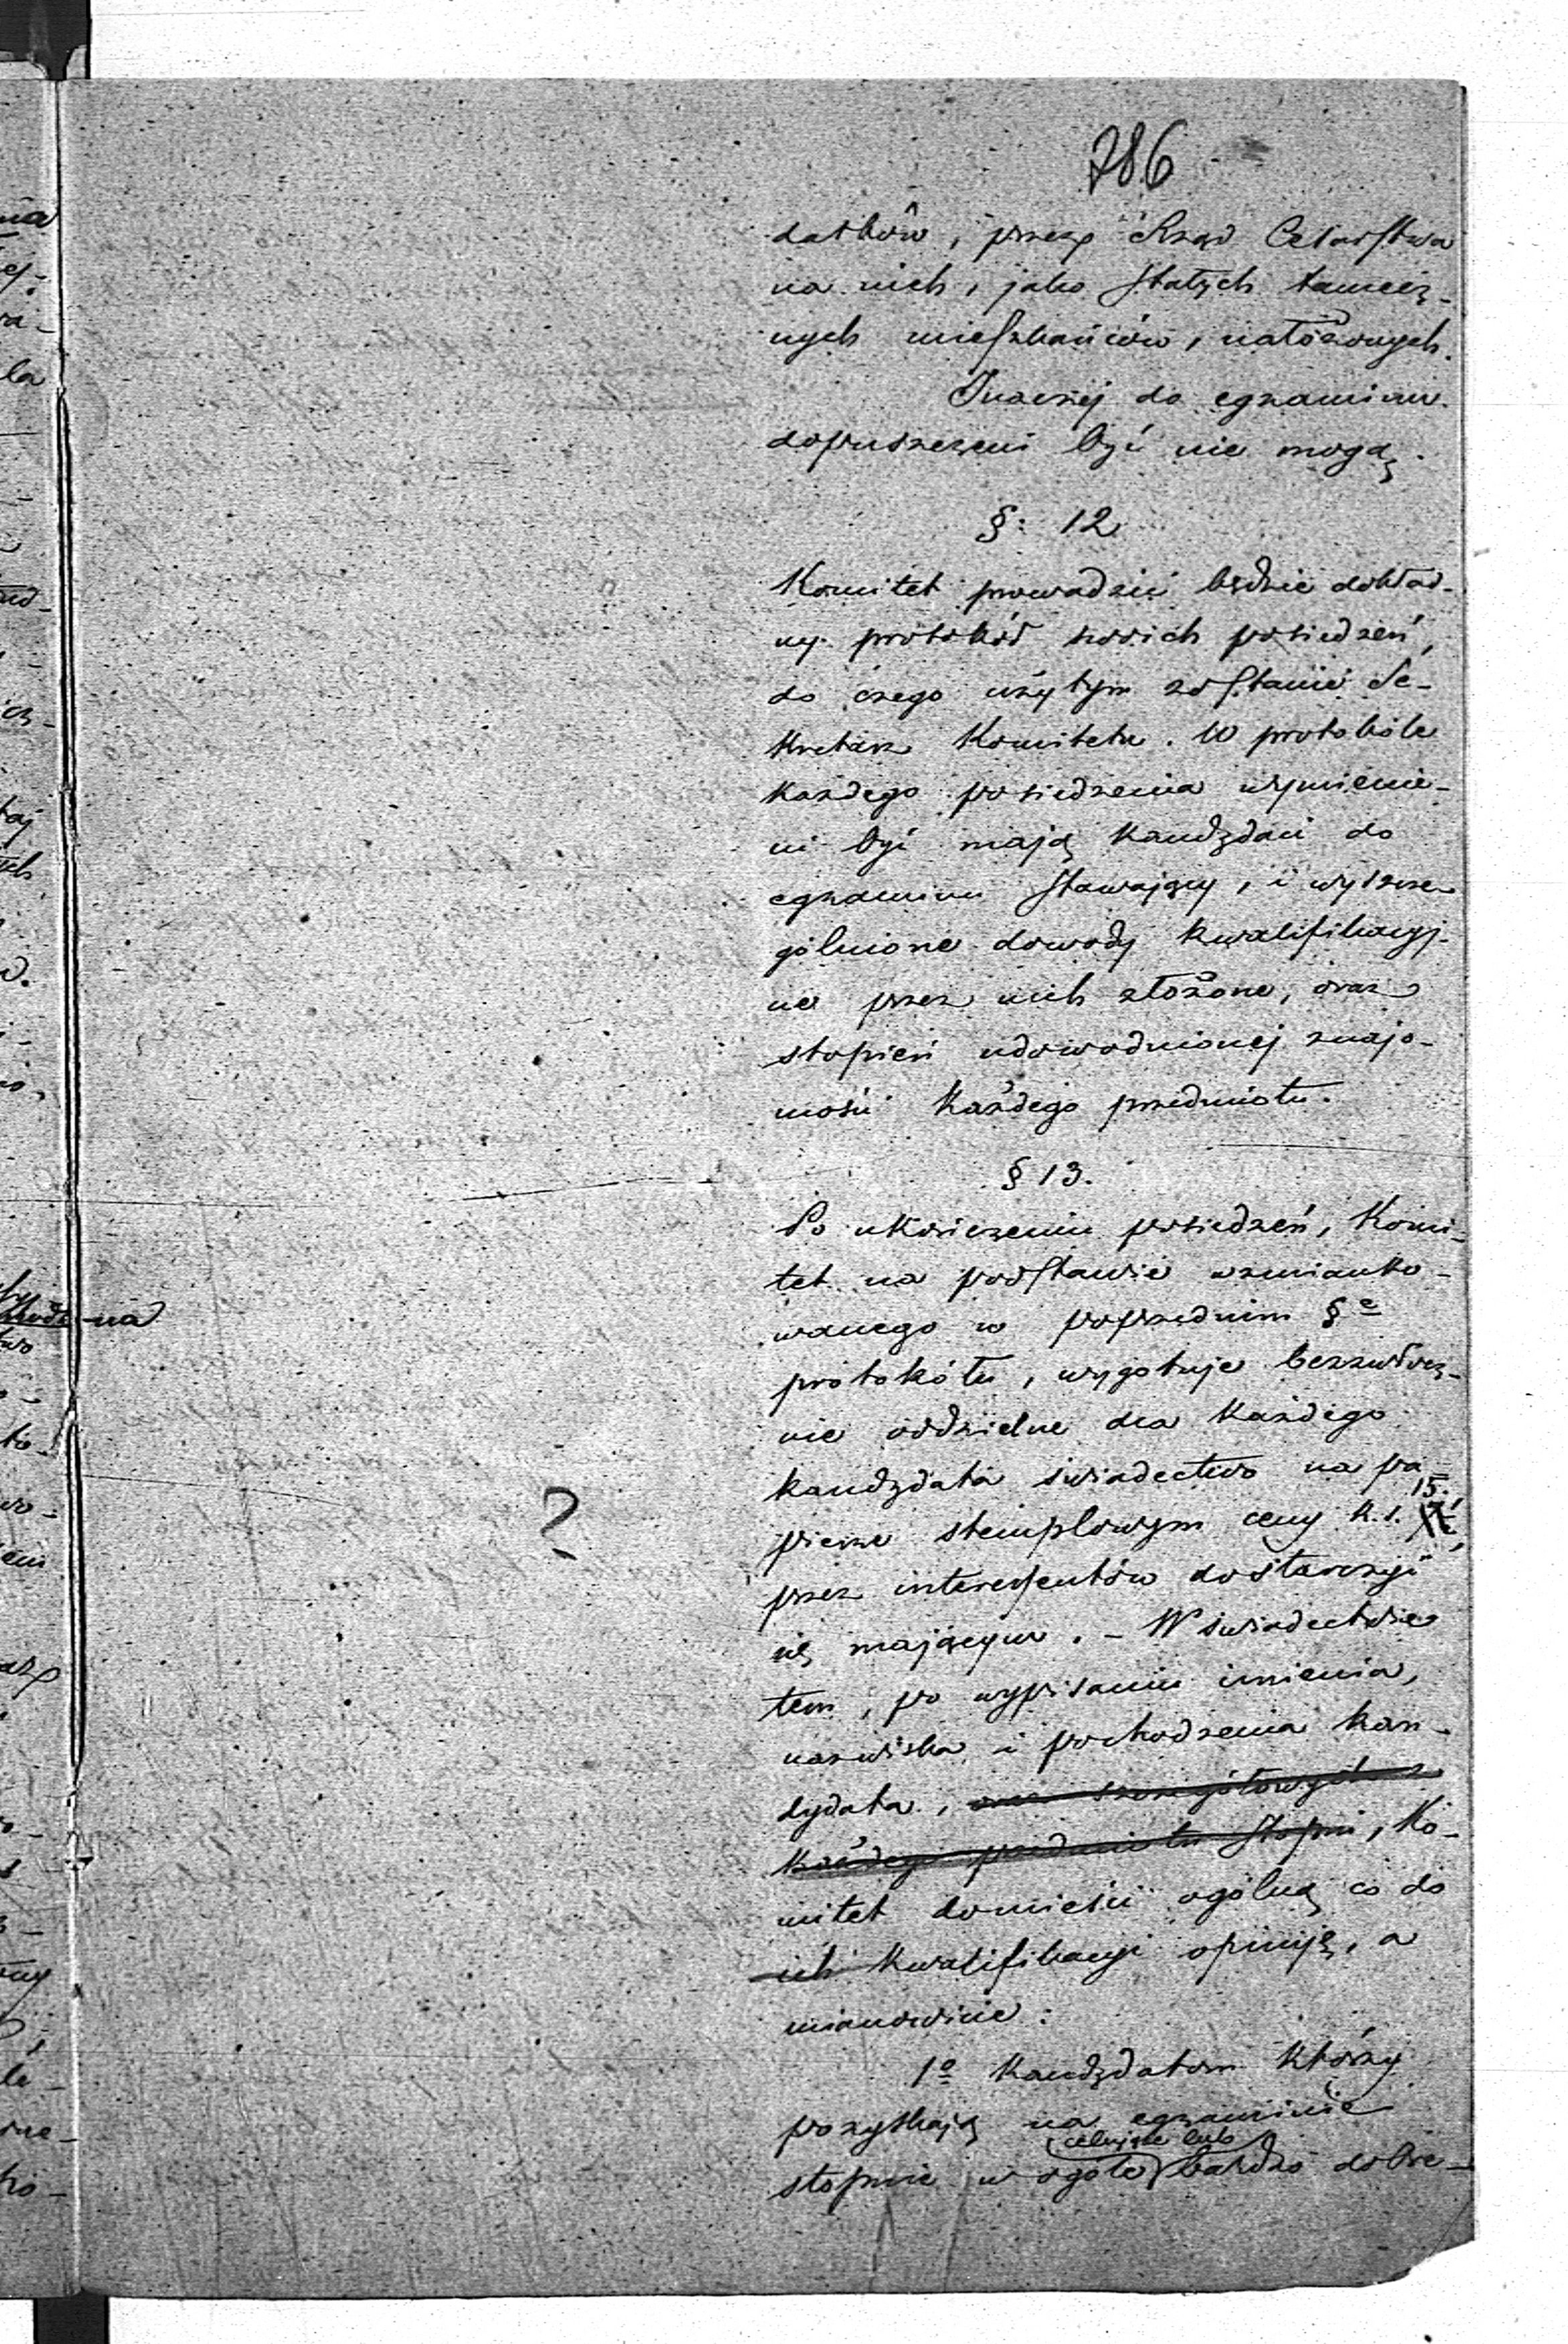 286
datków, przez Rząd Cesarstwa
na nich, jako stałych tamecz-
nych mieszkańców, nałożonych.
Inaczej do egzaminu
dopuszczeni być nie mogą.
§: 12
Komitet prowadzić będzie dokład-
ny protokół swoich posiedzeń,
do czego użytym zostanie Se-
kretarz Komitetu. W protokóle
każdego posiedzenia wymienie-
ni być mają kandydaci do
egzaminu stawający, i wyszcze-
gólnione dowody kwalifikacyj-
ne przez nich złożone, oraz
stopień udowodnionej znajo-
mości każdego przedmiotu.
§ 13.
Po ukończeniu posiedzeń, Komi-
tet na podstawie wzmianko-
wanego w poprzednim §e
protokółu, wygotuje bezzwłocz-
nie oddzielne dla każdego
kandydata świadectwo na pa-
pierze stemplowym ceny k.s. 15.
przez interesentów dostarczyć
się mającym. – W świadectwie
tem, po wypisaniu imienia,
nazwiska i pochodzenia kan-
dydata, oraz szczegółowych z
każdego przedmiotu stopni, Ko-
mitet domieści ogólną co do
ich kwalifikacyi opiniję, a
mianowicie:
1o kandydatom którzy
pozyskają na egzaminie
celujące lub
stopnie w ogóle bardzo dobre
?